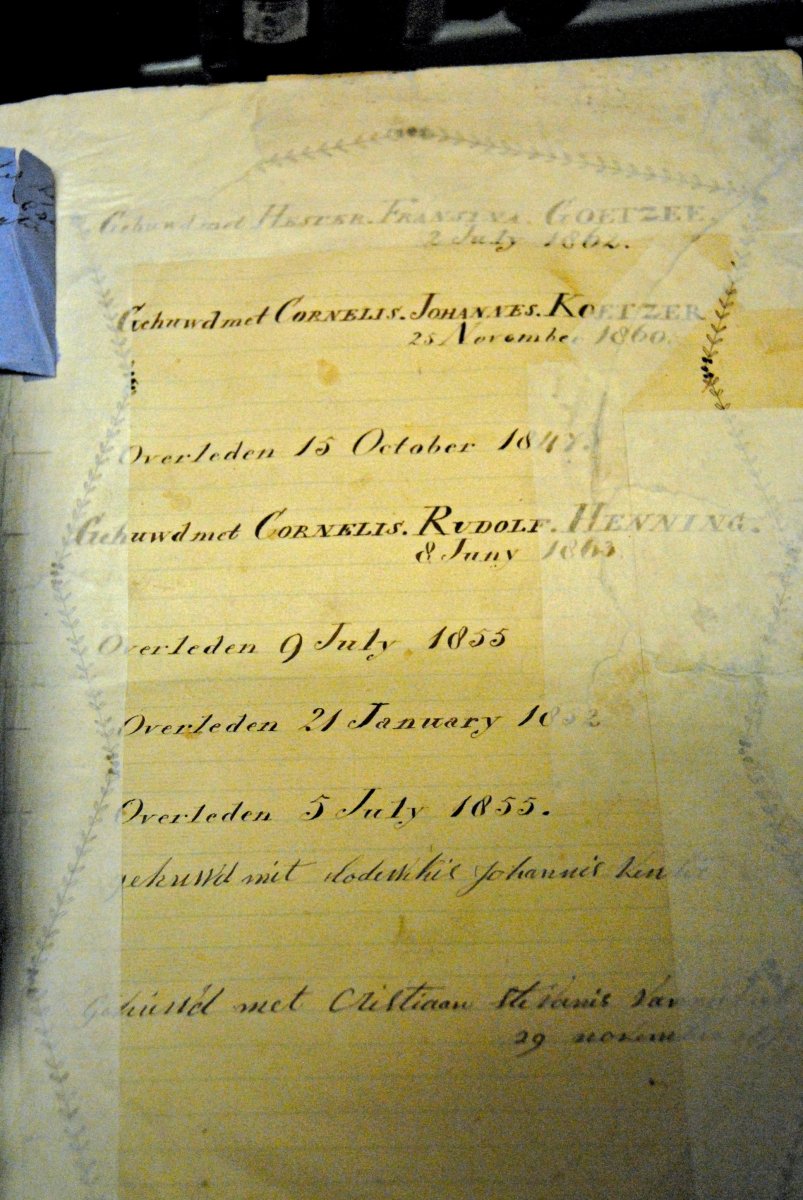 Gehuwd met HESTER. FRANSINA. GOETZEE.
2 July 1862.
Gehuwd met CORNELIS. JOHANNES. KOETZER
25 November 1860.
Overleden 15 October 1847.
Gehuwd met CORNELIS. RUDOLF. HENNING.
8 Juny 1863
Overleden 9 July 1855
Overleden 21 January 1852
Overleden 5 July 1855.
gehuwd met Johannis
Gehuwd met Cristiaan Stefanis Van
29 november